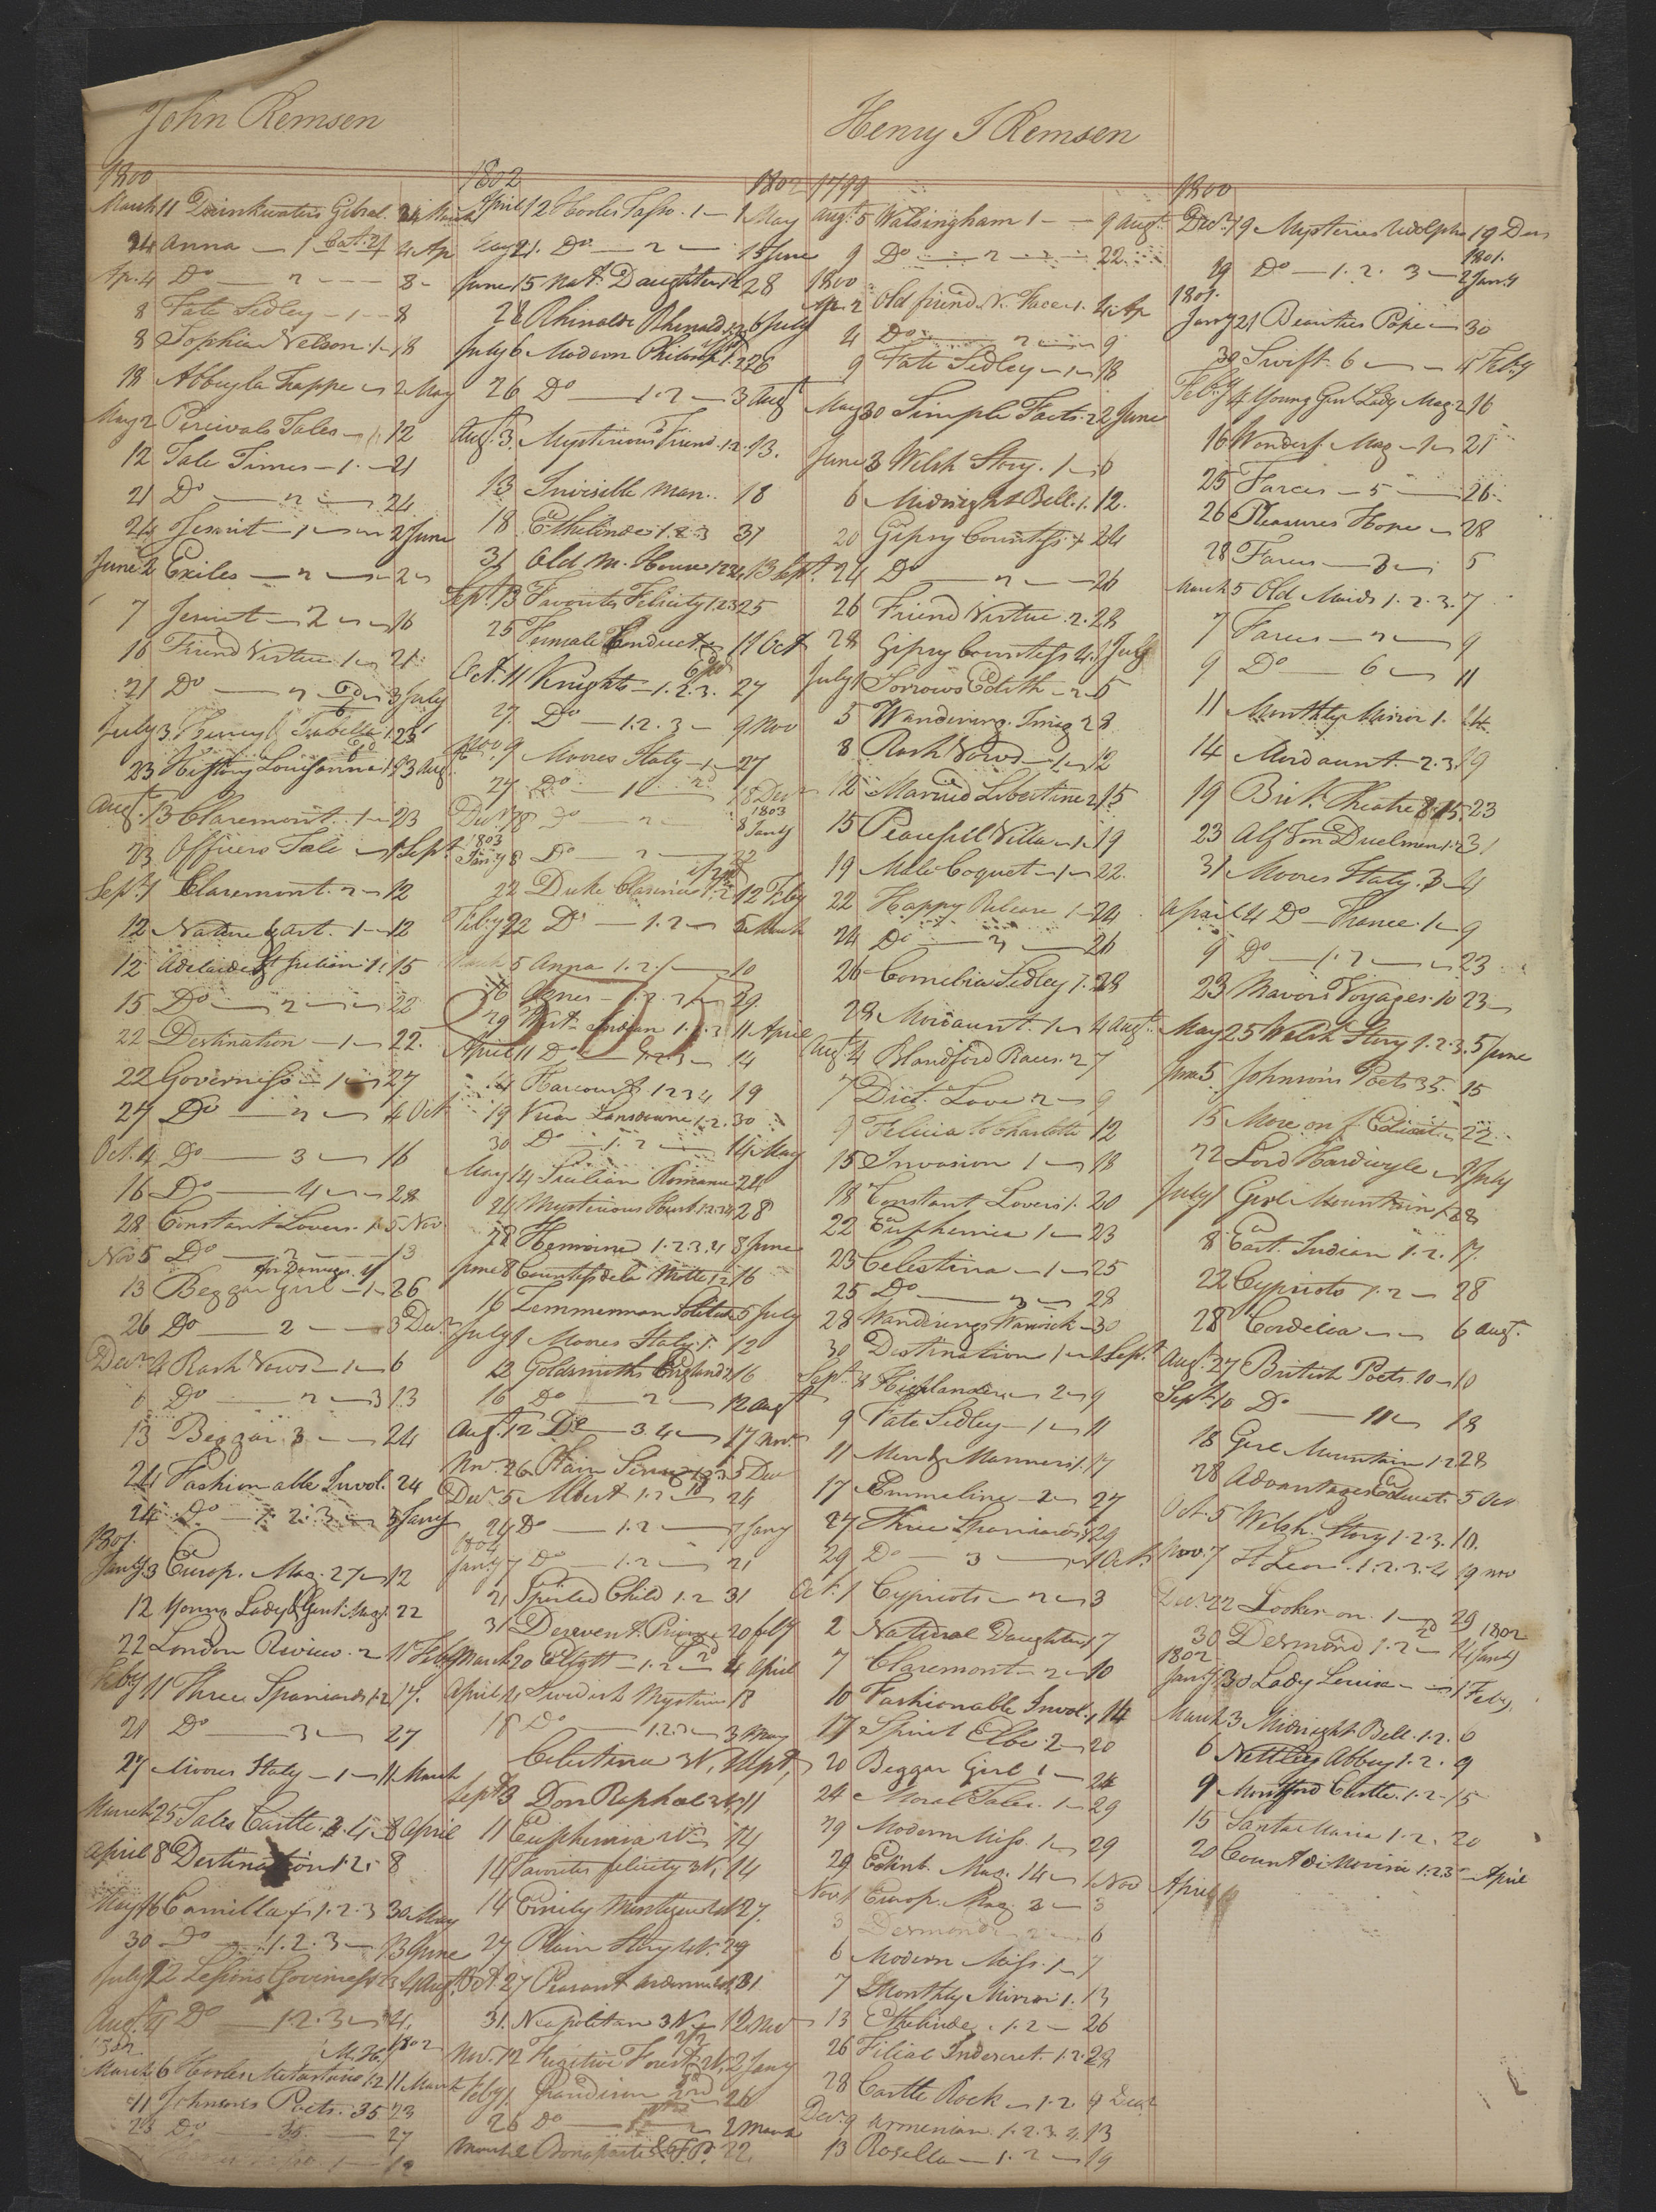 John Remsen
1800
March 11 Drinkwaters Gibral. 24 March
24 Anna — 1 4 Ap
Ap. 4 Do — 2 — 8
8 Fate Sedley — 1 — 8
8 Sophia Nelson. 1 — 18
18 2 May
May 2 Percivals Tales — 12
12 Tale Times — 1. — 21
21 Do — 2 — 24
24 Jesuit — 1 — 2 June
June 2 Exiles — 2 —
7 Jesuit — 2 — 16
16 Friend Virtue 1 — 21
21 Do — 2 — 3 July
July 3 Isabella 1. 23
23 History Louisanna 13 Aug
Augt. 13 Claremont. 1 — 23
23 Officers Tale — 1 Sept
Sept. 1 Claremont. 2 — 12
12 Nature & Art. 1 — 12
12 Adelaide St Julian 1. 15
15 Do — 2 — 22
22 Destination — 1 — 22.
22 Governess — 1 — 27
27 Do — 2 — 4 Oct
Oct. 4 Do — 3 — 16
16 Do — 4 — 28
28 Constant Lovers. 1 5 Nov.
Nov 5 Do — 2 — 13
13 Beggar Girl — 1 — 26
26 Do — 2 — 3 Decr.
Decr. 4 Rash Vows — 1 — 6
6 Do — 2 — 13
13 Beggar 3 — 24
24 Fashionable Invol. 24
24 Do — 1. 2. 3. — 3 Jany
1801.
Jany. 3 Europ. Mag. 27 — 12
12 Young Lady & Gent. Mag. 22
22 London Review. 2 — 11 Feby
Feby 11 Three Spaniards 1.2 17.
21 Do — 3 — 27
27 Moores Italy — 1 — 11 March
March 25 Tales Castle. 4 — 8 April
April 8 Destination 1. 2. 8
May 16 Camilla 1. 2. 3 30 May
30 Do — 1. 2. 3 — 13 June
July 22 Lessons Governess 4 Aug
Aug. 4 Do — 1. 2. 3 — 4.
1802.
March 6 Hooles Metastasio 1.2 11 March
11 Johnsons Poets. 35 23
23 Do — 27
1802
April 12 Hooles Tasso. 1 — 1 May
May 21. Do — 2 — 15 June
June 15 Nat. Daughter 1.2 28
28 Rhinaldo Rhinald 6 July
July 6 Modern Philosoph 1. 2 26
26 Do — 1. 2 — 3 Augt
Augt. 3. Mysterious Friend. 1. 2. 13.
13 Invisible Man. 18
18. Ethelinde 1. 2. 3 31
31 Old M. House 1 2 3 4. 13 Sept.
Sept. 13 Favorites Felicity 1.2.3 25
25 Female Conduct 11 Oct
Oct. 11 Knights — 1. 2. 3. 27
27. Do — 1. 2. 3 — 9 Nov
Nov. 9 Moores Italy — 1 — 27
27 Do — 1 — 18 Decr
1803
Decr. 18 Do — 2 — 8 Jany
1803
Jany 8 Do — 2 — 22
22 Duke Clarence 1. 2 12 Feby
Feby 22 Do — 1. 2 — 5 March
March 5 Anna 1. 2. — 10
16 Agnes — 1. 2. 3 — 29.
29 West Indian 1. 2. 3 11 April
April 11 Do — 1. 2. 3 — 14
14 Harcourt. 1 2 3 4 19
19 Vicar Lansdowne 1. 2. 30
30 Do — 1. 2 — 14 May
May 14 Sicilian Romance 24
24 Mysterious Husb. 1.2.3.4 28
28 Hermione 1. 2. 3. 4 8 June
June 8 Countess de la Motte 1.2 16
16 Zemmerman Solitude 5 July
July 1 Moores Italy. 1. 12
12 Goldsmiths England 2 16
16 Do — 2 — 12 Augt
Augt. 12 Do — 3. 4 — 17 Nov.
Nov. 26 Plain Sense 1. 2. 3 5 Dec
Decr. 5 Albert 1. 2 — 24
24 Do — 1. 2 — 7 Jany
1804
Jany. 7 Do — 1. 2 — 21
21 Spoiled Child 1. 2 31
31 Derevent. Priory 20 feby
March 20 — 1. 2 — 4 April
April 4 Swedish Mysteries 18
18 Do — 1. 2. 3 — 3 May
Celestina 3 V. 1 Sept,
Sept. 3 Don Raphael 3 V. 11
11 Euphemia V — 14
14 Favorites felicity 3 V. 14
14 Emily Montague 27.
27 Plain Story 4 V. 29
Oct. 27 Peasant Ardennes 31
31. Neapolitan 3 V. — 12 Nov
Nov. 12 Fugitive Forest. 2 V. 2 Jany
Feby 1. Grandison 26
26 Do — 2 March
March 2 Bonaparte & F. P. 22.
Henry S Remsen
1799
Augt. 5 Walsingham 1 — 9 Augt.
9 Do — 2 — 22
1800
Ap. 2 Old friend N. Face 1. 4 Ap
4 Do — 2 — 9
9 Fate Sedley — 1 — 18
May 30 Simple Facts. 2 2 June
June 3 Welsh Story. 1 — 6
6 Midnight Bell. 1. 12.
20 Gipsy Countess. 24
24 Do — 2 — 26
26 Friend Virtue. 2. 28
28 Gipsy Countess 4. 1 July
July 1 Sorrows Edith — 2 — 5
5 Wandering. Imag 2 8
8 Rash Vows — 1 — 12
12 Married Libertine 2 15
15 Peacefull Villa — 1 — 19
19 Male Coquet — 1 — 22.
22 Happy Release 1 — 24
24 Do — 2 — 26
26 Cornelia Sedley 1. 28
28 Mordaunt. 1 — 4 Augt.
Augt. 4 Blandford Races. 2 7
7 Dict. Love 2 — 9
9 Felicia to Charlotte 12
15 Invasion 1 — 18
18 Constant Lovers 1. 20
22 Euphemia 1 — 23
23 Celestina — 1 — 25
25 Do — 2 — 28
28 Wanderings Warwick — 30
30 Destination 1 — Sept.
Sept. 4 Highlanders 2 — 9
9 Fate Sedley — 1 — 11
11 Men & Manners 1. 17
17 Emmeline — 2 — 27
27 Three Spaniards 29
29 Do — 3 — 1 Oct.
Oct. 1 Cypriots — 2 — 3
2 Natural Daughter 7
7 Claremont — 2 — 10
10 Fashionable Invol. 1 14
17 Spirit Elbe. 2 — 20
20 Beggar Girl 1 — 24
24 Moral Tales. 1 — 29
29 Modern Miss. 1 — 29
29 Edinb. Mag. 14 — 1 Nov
Nov. 1 Europ. Mag 2 — 3
3 Desmond — 2 — 6
6 Modern Miss. 1 — 7
7 Monthly Mirror 1. 13
13 Ethelinde. 1. 2 — 26
26 Filial Inderect. 1. 2. 28
28 Castle Rock — 1. 2. 9 Decr
Decr. 9 Armenian. 1. 2. 3. 4. 13
13 Rosella — 1. 2 — 19
1800
Decr. 19 Mysteries Udolpho 19 Decr
1801.
29 Do — 1. 2. 3 — 2 Jany
1801.
Jany 21 Beauties Pope — 30
30 Swift. 6 — 4 Feby
Feby 4 Young Gent Lady Mag. 2 16
16 Wonderf. Mag — 1 — 21
25 Farces — 5 — 26
26 Pleasures Hope — 28
28 Farces — 3 — 5
March 5 Old Maids 1. 2. 3. 7
7 Farces — 2 — 9
9 Do — 6 — 11
11 Monthly Mirror 1. 14
14 Mordaunt. 2. 3. 19
19 Brit. Theatre 8. 15. 23
23 Alf Von Duelmen 1. 2 31
31 Moores Italy. 3 — 4
April 4 Do — France. 1 — 9
9 Do — 1. 2 — 23
23 Mavors Voyages. 10 23 —
May 25 Welsh Story 1. 2. 3. 5 June
June 5 Johnsons Poets 35. 15
15 More on f. Educat. 22
22 Lord Hardivyle — July
July 1 Girl Mountain 1. 28
8 East. Indian 1. 2. 17.
22 Cypriots 1. 2 — 28
28 Cordelia — 6 Augt.
Augt. 27 British Poets. 10 — 10
Sept. 10 Do — 11 — 18
18 Girl Mountain 1. 2 28
28 Advantages Educat. 5 Oct
Oct. 5 Welsh. Story 1. 2. 3. 10.
Nov. 7 St Leon. 1. 2. 3. 4 19 Nov
Decr. 22 Looker-on. 1 — 29
1802
30 Desmond 1. 2 — 14 Jany
1802
Jany 30 Lady Louisa — 1 Feby.
March 3 Midnight Bell. 1. 2. 6
6 Nettley Abbey 1. 2. 9
9 Montford Castle. 1. 2. 15
15 Santa Maria 1. 2. 20
20 Count di Novini 1. 2. 3 — April
April